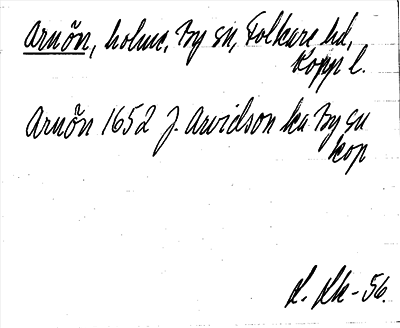 Arnön, holme, By sn, Folkare hd,
Kopp l.
Arnön 1652 J. Arvidson ka By sn
kop